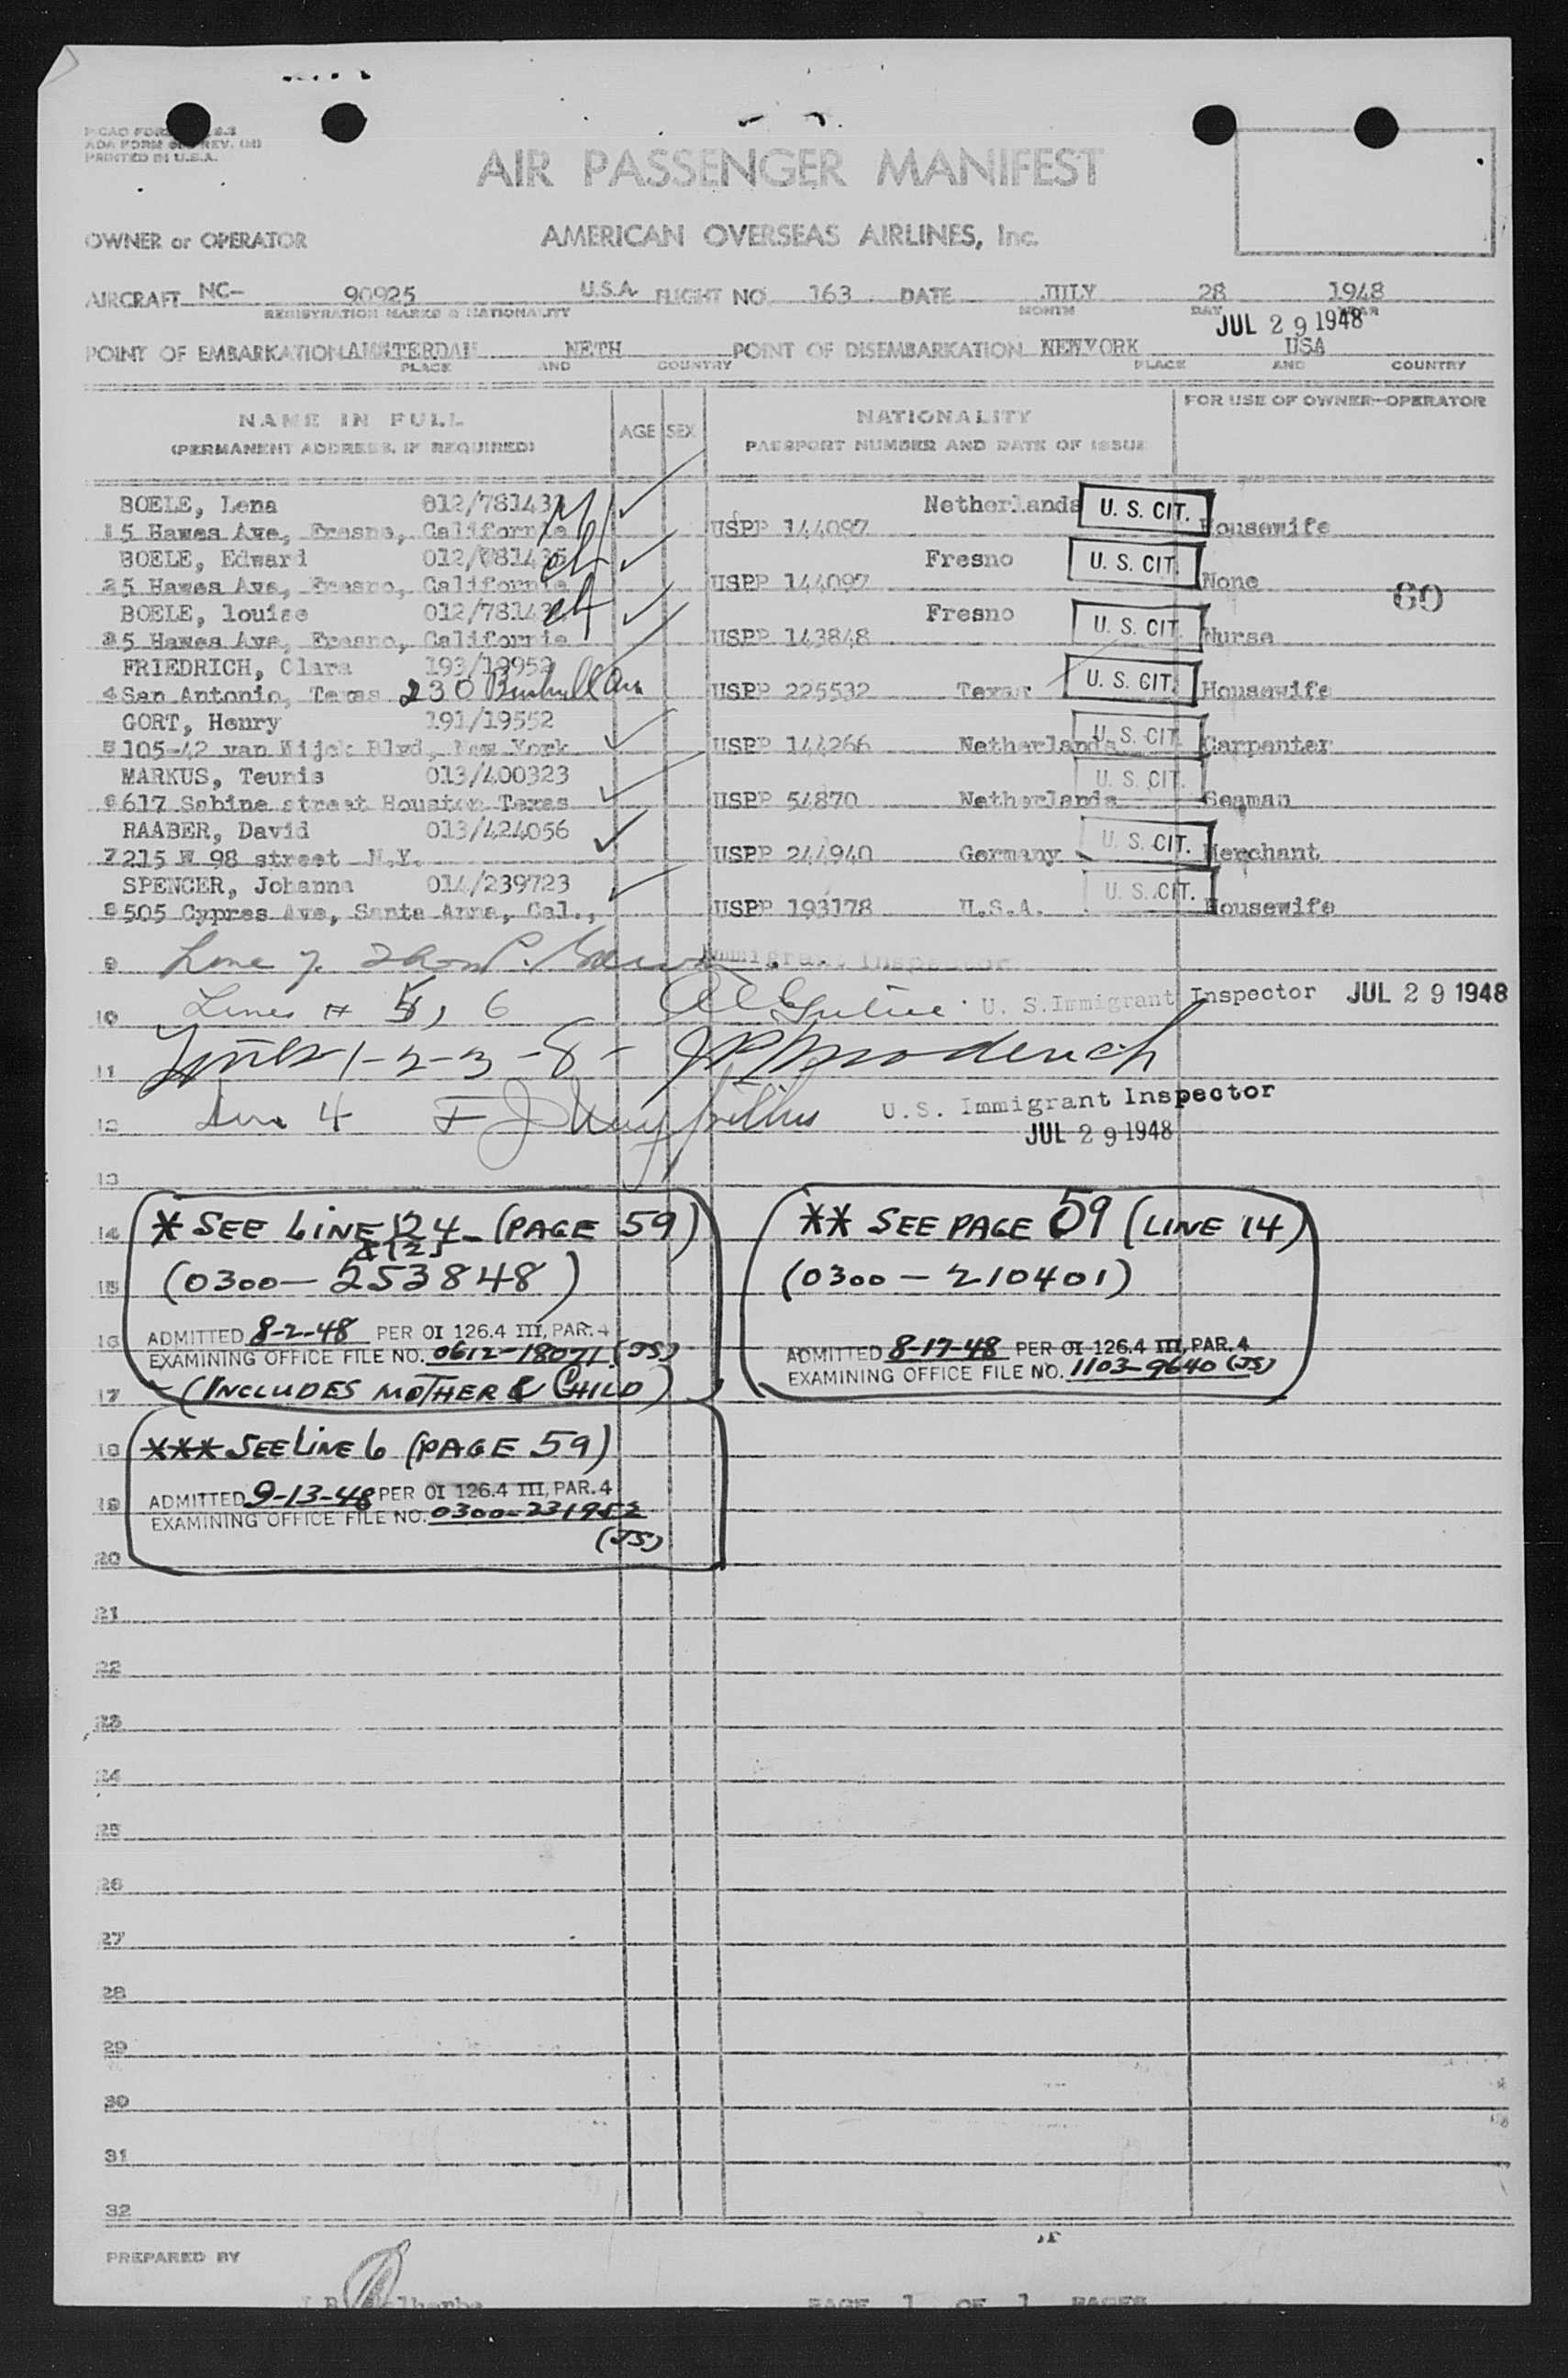 PRINTED IN U.S.A.
AIR PASSENGER MANIFEST
OWNER or OPERATOR AMERICAN OVERSEAS AIRLINES, Inc.
AIRCRAFT NC- 90925 U.S.A. FLIGHT NO. 163 DATE JULY 28 1948
REGISTRATION MARKS & NATIONALITY MONTH DAY YEAR
JUL 29 1948
POINT OF EMBARKATION AMSTERDAM NETH POINT OF DISEMBARKATION NEWYORK USA
PLACE AND COUNTRY PLACE AND COUNTRY
NAME IN FULL AGE SEX NATIONALITY FOR USE OF OWNER-OPERATOR
(PERMANENT ADDRESS, IF REQUIRED) PASSPORT NUMBER AND DATE OF ISSUE
BOELE, Lena Netherlands U. S. CIT.
1 5 Hawes Ave, Fresno, California USPP 144097 Housewife
BOELE, Edward Fresno U. S. CIT.
2 5 Hawes Ave, Fresno, California USPP 144097 None
60
BOELE, louise Fresno U. S. CIT.
3 5 Hawes Ave, Fresno, California USPP 143848 Nurse
FRIEDRICH, Clara 193/19952
4 San Antonio, Texas 230 USPP 225532 Texas U. S. CIT. Housewife
GORT, Henry 191/19552
5 105-42 van Wijck Blvd, New York USPP 144266 Netherlands U. S. CIT. Carpenter
MARKUS, Teunis 013/400323
6 617 Sabine street Houston Texas USPP 54870 Netherlands U. S. CIT. Seaman
RAABER, David 013/424056
7 215 W 98 street N.Y. USPP 244940 Germany U. S. CIT. Merchant
SPENCER, Johanna 014/239723
8 505 Cypres Ave, Santa Anna, Cal., USPP 193178 U.S.A. U. S. CIT. Housewife
9 Line 7. Immigrant Inspector
10 Lines # 5, 6 U. S. Immigrant Inspector JUL 29 1948
11 Lines 1-2-3-8-
12 Line 4 U.S. Immigrant Inspector
JUL 29 1948
13
14 * SEE LINE 24 (PAGE 59) ** SEE PAGE 59 (LINE 14)
15 (0300-253848) (0300-210401)
16 ADMITTED 8-2-48 PER OI 126.4 III, PAR. 4 ADMITTED 8-17-48 PER OI 126.4 III, PAR. 4
EXAMINING OFFICE FILE NO. 0612-18071 (JS) EXAMINING OFFICE FILE NO. 1103-9640 (JS)
17 (INCLUDES MOTHER & CHILD)
18 *** SEE LINE 6 (PAGE 59)
19 ADMITTED 9-13-48 PER OI 126.4 III, PAR. 4
EXAMINING OFFICE FILE NO. 0300-231952
(JS)
20
21
22
23
24
25
26
27
28
29
30
31
32
PREPARED BY
PAGE 1 OF 1 PAGES